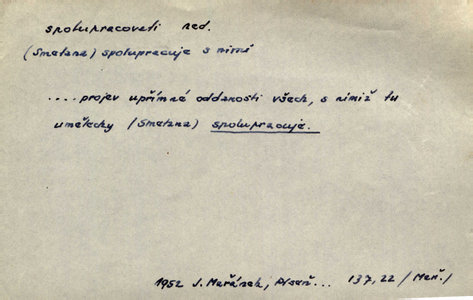 spolupracovati ned.
(Smetana) spolupracuje s nimi
....projev upřímné oddanosti všech, s nimiž tu
umělecky (Smetana) spolupracuje.
1952 J. Mařánek, Píseň... 137, 22 /Mař./